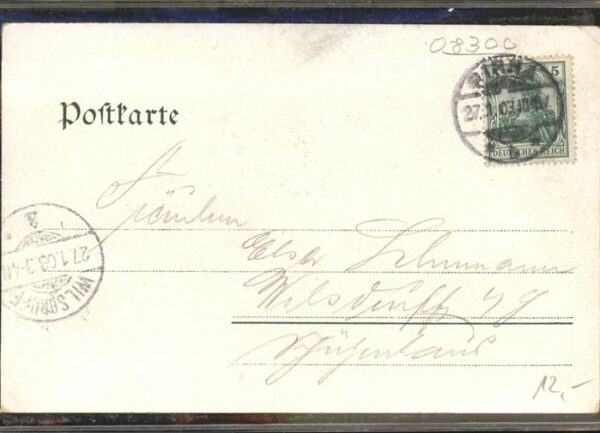 08300
PIRNA
27.1.03
5
DEUTSCHES REICH
Postkarte
Fräulein
Elsa Lehmann
Wilsdruff
Schützenhaus
WILSDRUFF
27.1.03.3-4N
12,-